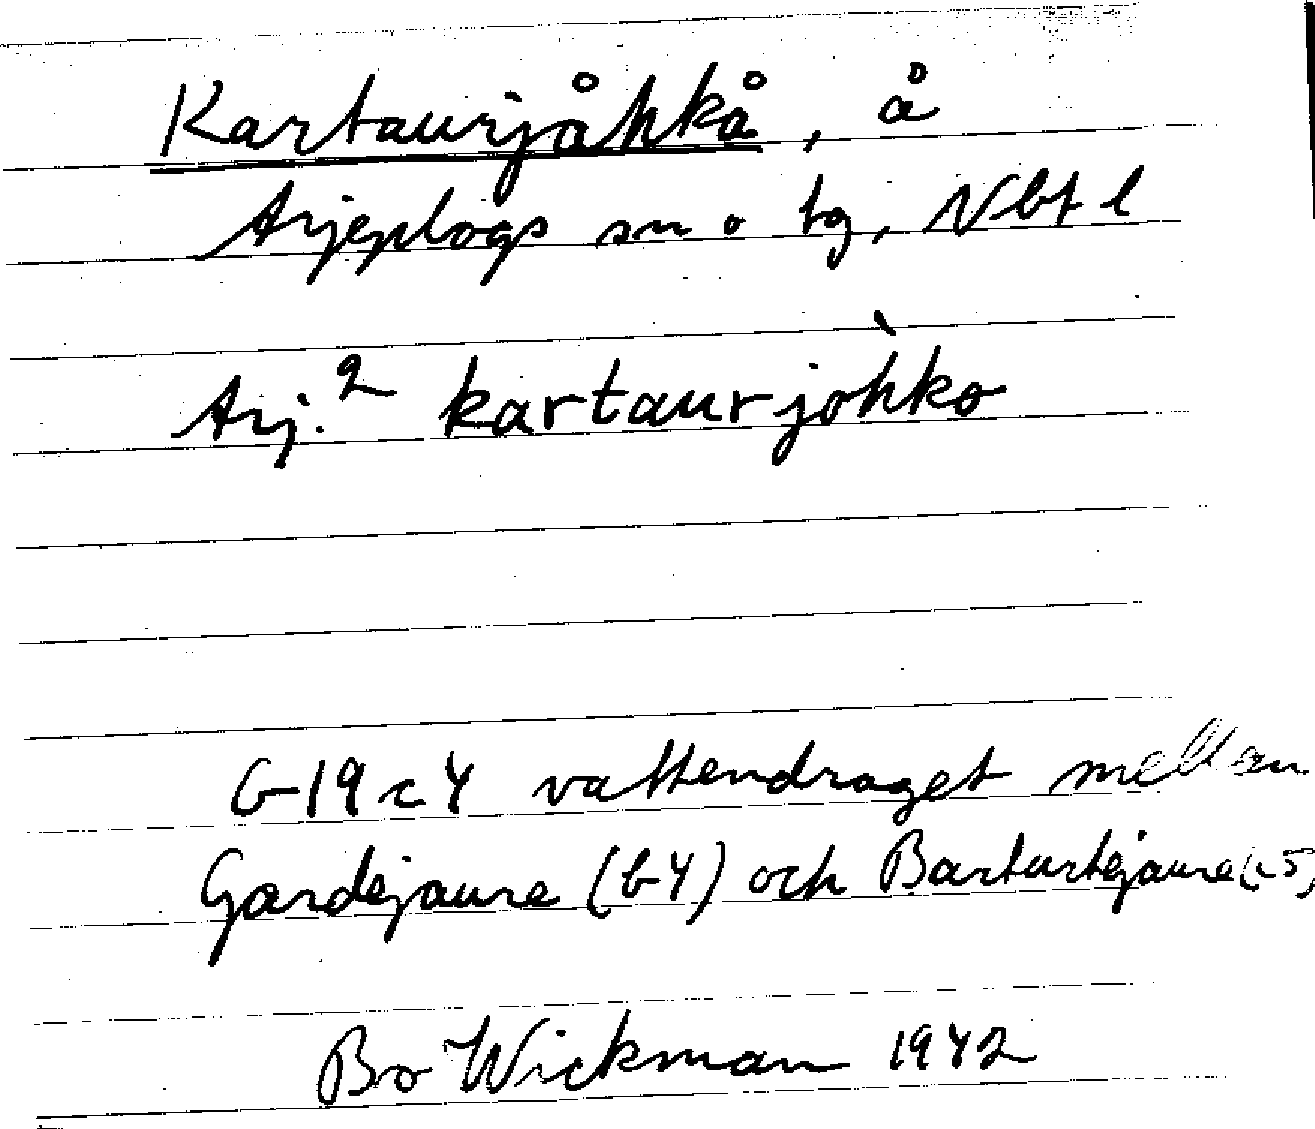 Kartaurjåhkå, å
Arjeplogs sn o tg, Nbt l
Arj.2 kartaurjòhko
G19c4 vattendraget mellan
Gardejaure (b4) och Barturtejaure (c5)
Bo Wickman 1942